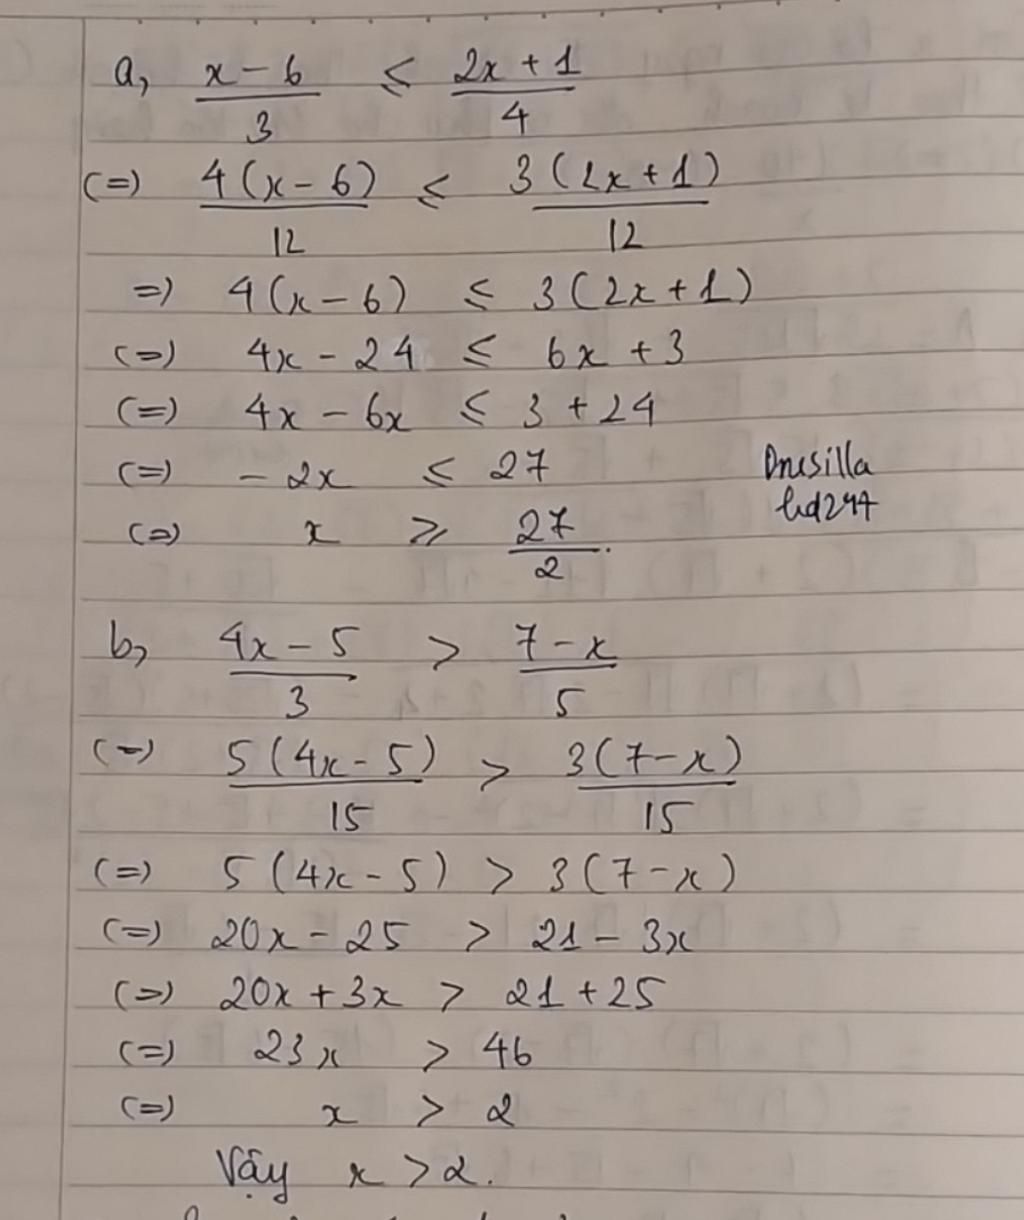 a, x - 6 / 3 ≤ 2x + 1 / 4
(=) 4(x - 6) / 12 ≤ 3(2x + 1) / 12
=) 4(x - 6) ≤ 3(2x + 1)
(=) 4x - 24 ≤ 6x + 3
(=) 4x - 6x ≤ 3 + 24
(=) - 2x ≤ 27
Drusilla
(=) x ≥ 27 / 2.
b, 4x - 5 / 3 > 7 - x / 5
(=) 5(4x - 5) / 15 > 3(7 - x) / 15
(=) 5(4x - 5) > 3(7 - x)
(=) 20x - 25 > 21 - 3x
(=) 20x + 3x > 21 + 25
(=) 23x > 46
(=) x > 2
Vậy x > 2.